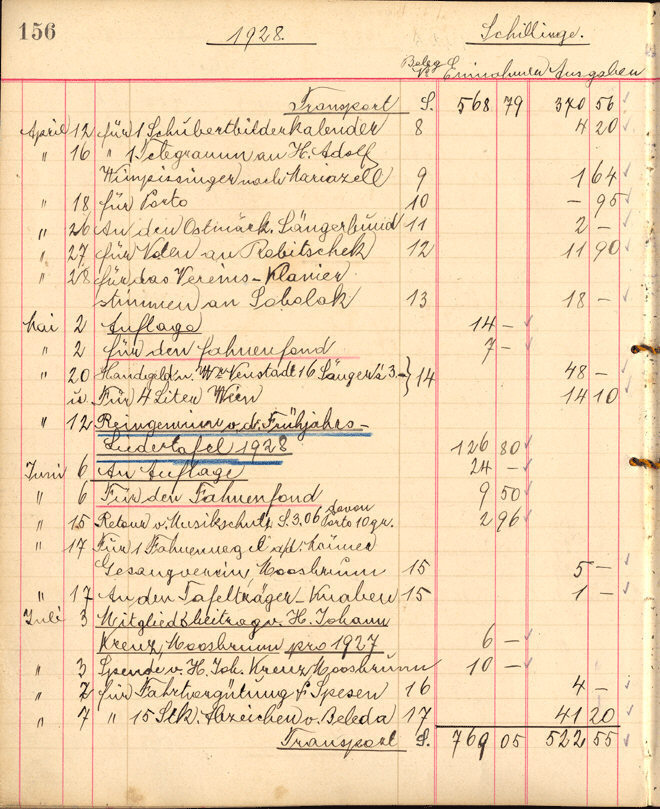 156 1928. Schillinge.
Beleg Nr. Einnahmen Ausgaben
Transport S. 568 79 370 56
April 12 für 1 Schubertbilderkalender 8 4 20
" 16 " 1 Telegramm an H. Adolf
Wimpissinger nach Mariazell 9 1 64
" 18 für Porto 10 – 95
" 26 An den Ostmärk. Sängerbund 11 2 –
" 27 für Noten an Robitschek 12 11 90
" 28 für das Vereins-Klavier
stimmen an Sobolak 13 18 –
Mai 2 Auflage 14 –
" 2 für den Fahnenfond 7 –
" 20 Handgeld n. Wr Neustadt 16 Sänger à 3.– } 14 48 –
u. Für 4 Liter Wein 14 10
" 12 Reingewinn v. d. Frühjahrs-
Liedertafel 1928 126 80
Juni 6 An Auflage 24 –
" 6 Für den Fahnenfond 9 50
" 15 Retour v. Musikschutz S. 3.06 davon Porto 10 gr. 2 96
" 17 Für 1 Fahnennagel
Gesangverein Moosbrunn 15 5 –
" 17 An den Tafelträger-Knaben 15 1 –
Juli 3 Mitgliedsbeitrag v. H. Johann
Krenz, Moosbrunn pro 1927 6 –
" 3 Spende v. H. Joh. Krenz, Moosbrunn 10 –
" 7 für Fahrvergütung & Spesen 16 4 –
" 7 " 15 Stk. Abzeichen v. Beleda 17 41 20
Transport S. 769 05 522 55